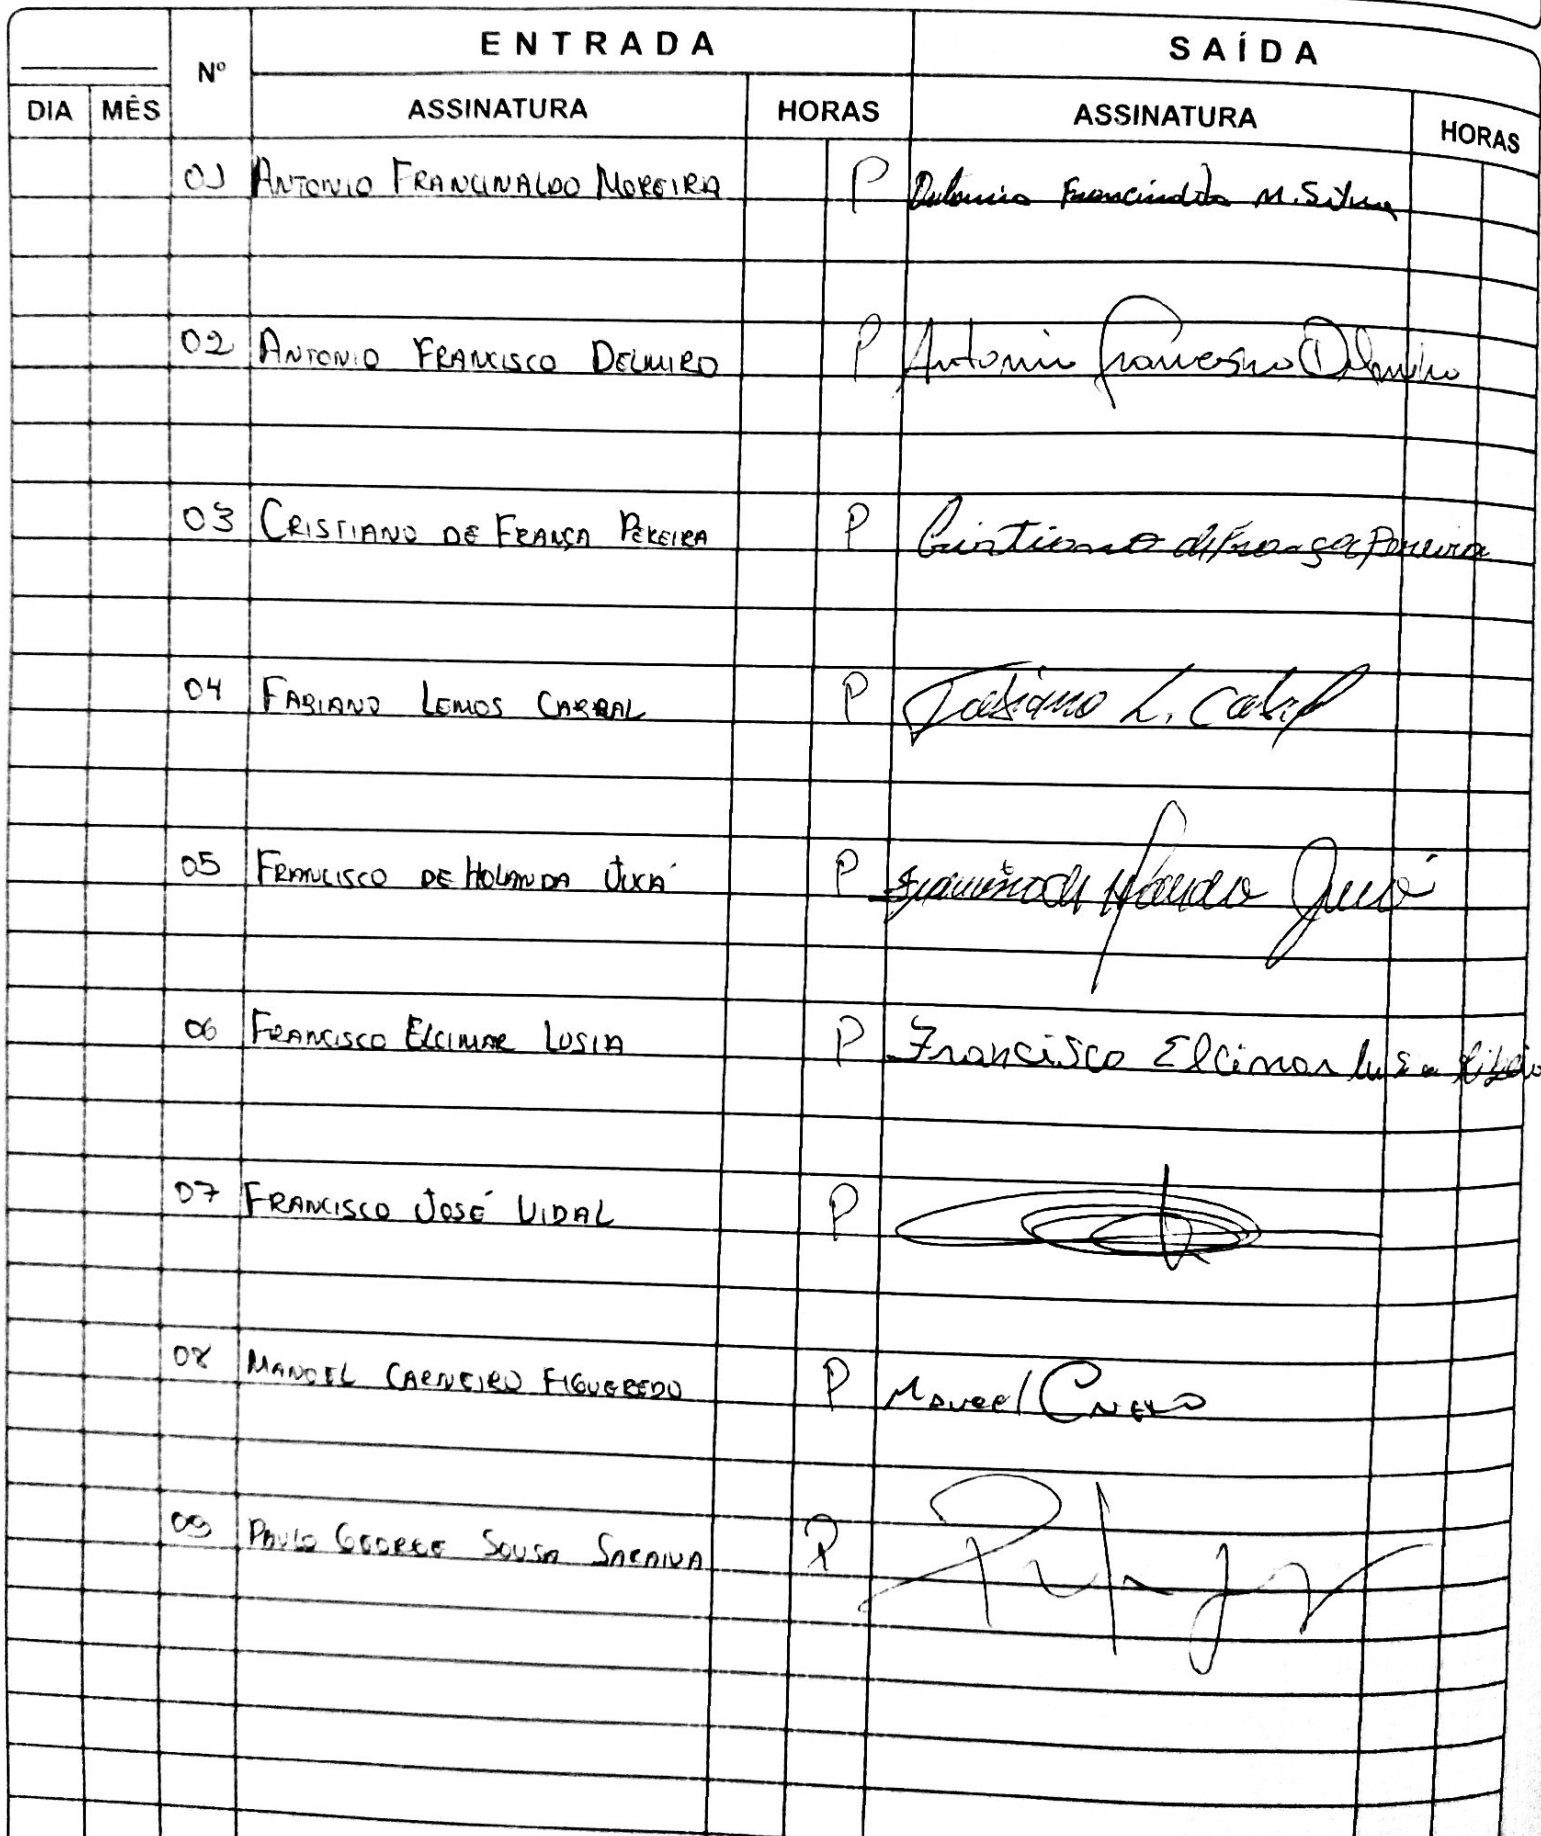 ENTRADA SAÍDA
Nº
DIA MÊS ASSINATURA HORAS ASSINATURA HORAS
01 ANTONIO FRANCINALDO MOREIRA P Antonio Francinaldo M. Silva
02 ANTONIO FRANCISCO DELMIRO P Antonio Francisco Delmiro
03 CRISTIANO DE FRANÇA PEREIRA P Cristiano de França Pereira
04 FABIANO LEMOS CABRAL P Fabiano L. Cabral
05 FRANCISCO DE HOLANDA JUCÁ P Francisco de Holanda Jucá
06 FRANCISCO ELCIMAR LUSIA P Francisco Elcimar
07 FRANCISCO JOSÉ VIDAL P
08 MANOEL CARNEIRO FIGUEREDO P Manoel
09 PAULO GEORGE SOUSA SARAIVA P